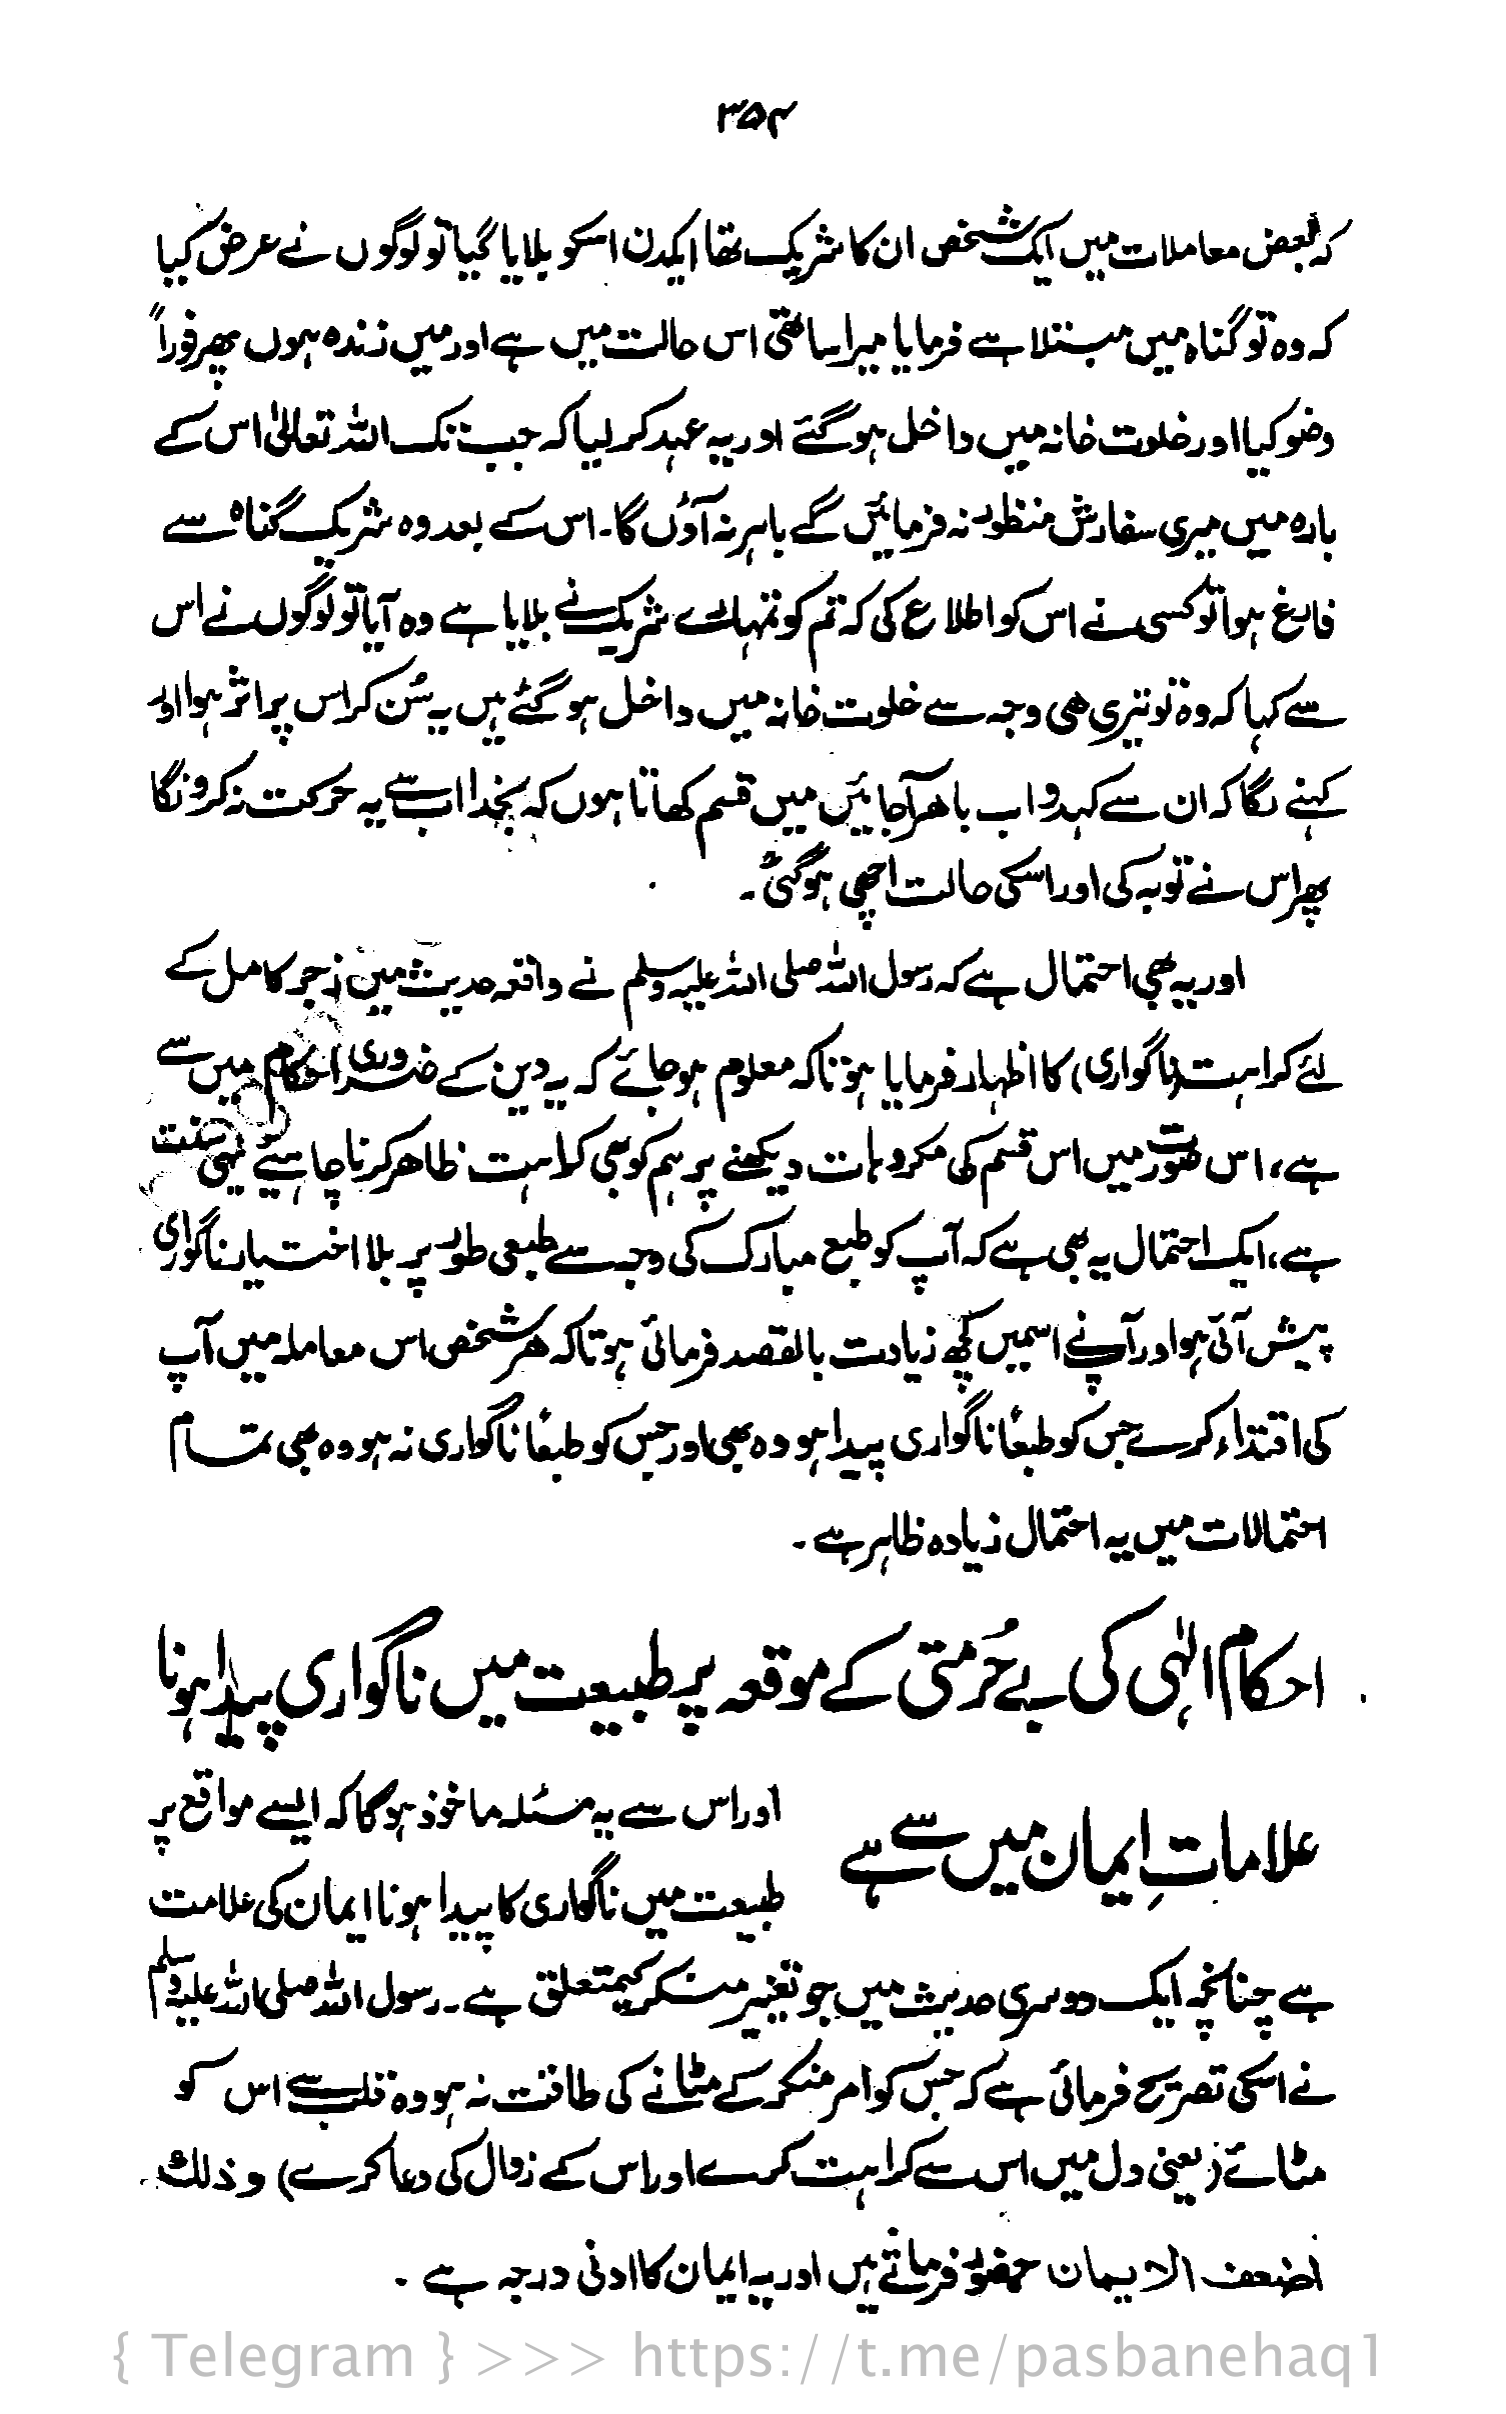 ۳۵۴
کہ بعض معاملات میں ایک شخص ان کا شریک تھا ایکدن اسکو بلایا گیا تو لوگوں نے عرض کیا
کہ وہ تو گناہ میں مبتلا ہے فرمایا میرا ساتھی اس حالت میں ہے اور میں زندہ ہوں پھر فوراً
وضو کیا اور خلوت خانہ میں داخل ہو گئے اور یہ عہد کر لیا کہ جب تک اللہ تعالیٰ اس کے
بارہ میں میری سفارش منظور نہ فرمائیں گے باہر نہ آؤں گا۔ اس کے بعد وہ شریک گناہ سے
فارغ ہوا تو کسی نے اس کو اطلاع کی کہ تم کو تمہارے شریک نے بلایا ہے وہ آیا تو لوگوں نے اس
سے کہا کہ وہ تو تیری ھی وجہ سے خلوت خانہ میں داخل ہو گئے ہیں یہ سُن کر اس پر اثر ہوا اور
کہنے لگا کہ ان سے کہدو اب باھر آجائیں میں قسم کھاتا ہوں کہ بخدا اب سے یہ حرکت نہ کرونگا
پھر اس نے توبہ کی اور اسکی حالت اچھی ہو گئی۔
اور یہ بھی احتمال ہے کہ رسول اللہ صلی اللہ علیہ وسلم نے واقعہ حدیث میں زجر کامل کے
لئے کراہت (ناگواری) کا اظہار فرمایا ہو تاکہ معلوم ہو جائے کہ یہ دین کے ضروری احکام میں سے
ہے، اس صورت میں اس قسم کی مکروہات دیکھنے پر ہم کو بھی کراہت ظاھر کرنا چاہیئے یہی سنت
ہے، ایک احتمال یہ بھی ہے کہ آپ کو طبع مبارک کی وجہ سے طبعی طور پر بلا اختیار ناگواری
پیش آئی ہو اور آپ نے اسمیں کچھ زیادت بالقصد فرمائی ہو تاکہ ھر شخص اس معاملہ میں آپ
کی اقتداء کرے جس کو طبعًا ناگواری پیدا ہو وہ بھی اور جس کو طبعًا ناگواری نہ ہو وہ بھی تمام
احتمالات میں یہ احتمال زیادہ ظاہر ہے۔
احکام الٰہی کی بے حُرمتی کے موقعہ پر طبیعت میں ناگواری پیدا ہونا
علاماتِ ایمان میں سے ہے
اور اس سے یہ مسئلہ ماخوذ ہو گا کہ ایسے مواقع پر
طبیعت میں ناگواری کا پیدا ہونا ایمان کی علامت
ہے چنانچہ ایک دوسری حدیث میں جو تغییر منکر کیمتعلق ہے۔ رسول اللہ صلی اللہ علیہ وسلم
نے اسکی تصریح فرمائی ہے کہ جس کو امر منکر کے مٹانے کی طاقت نہ ہو وہ قلب سے اس کو
مٹائے (یعنی دل میں اس سے کراہت کرے اور اس کے زوال کی دعا کرے) و ذلك
اضعف الایمان حضورؐ فرماتے ہیں اور یہ ایمان کا ادنی درجہ ہے۔
{ Telegram } >>> https://t.me/pasbanehaq1